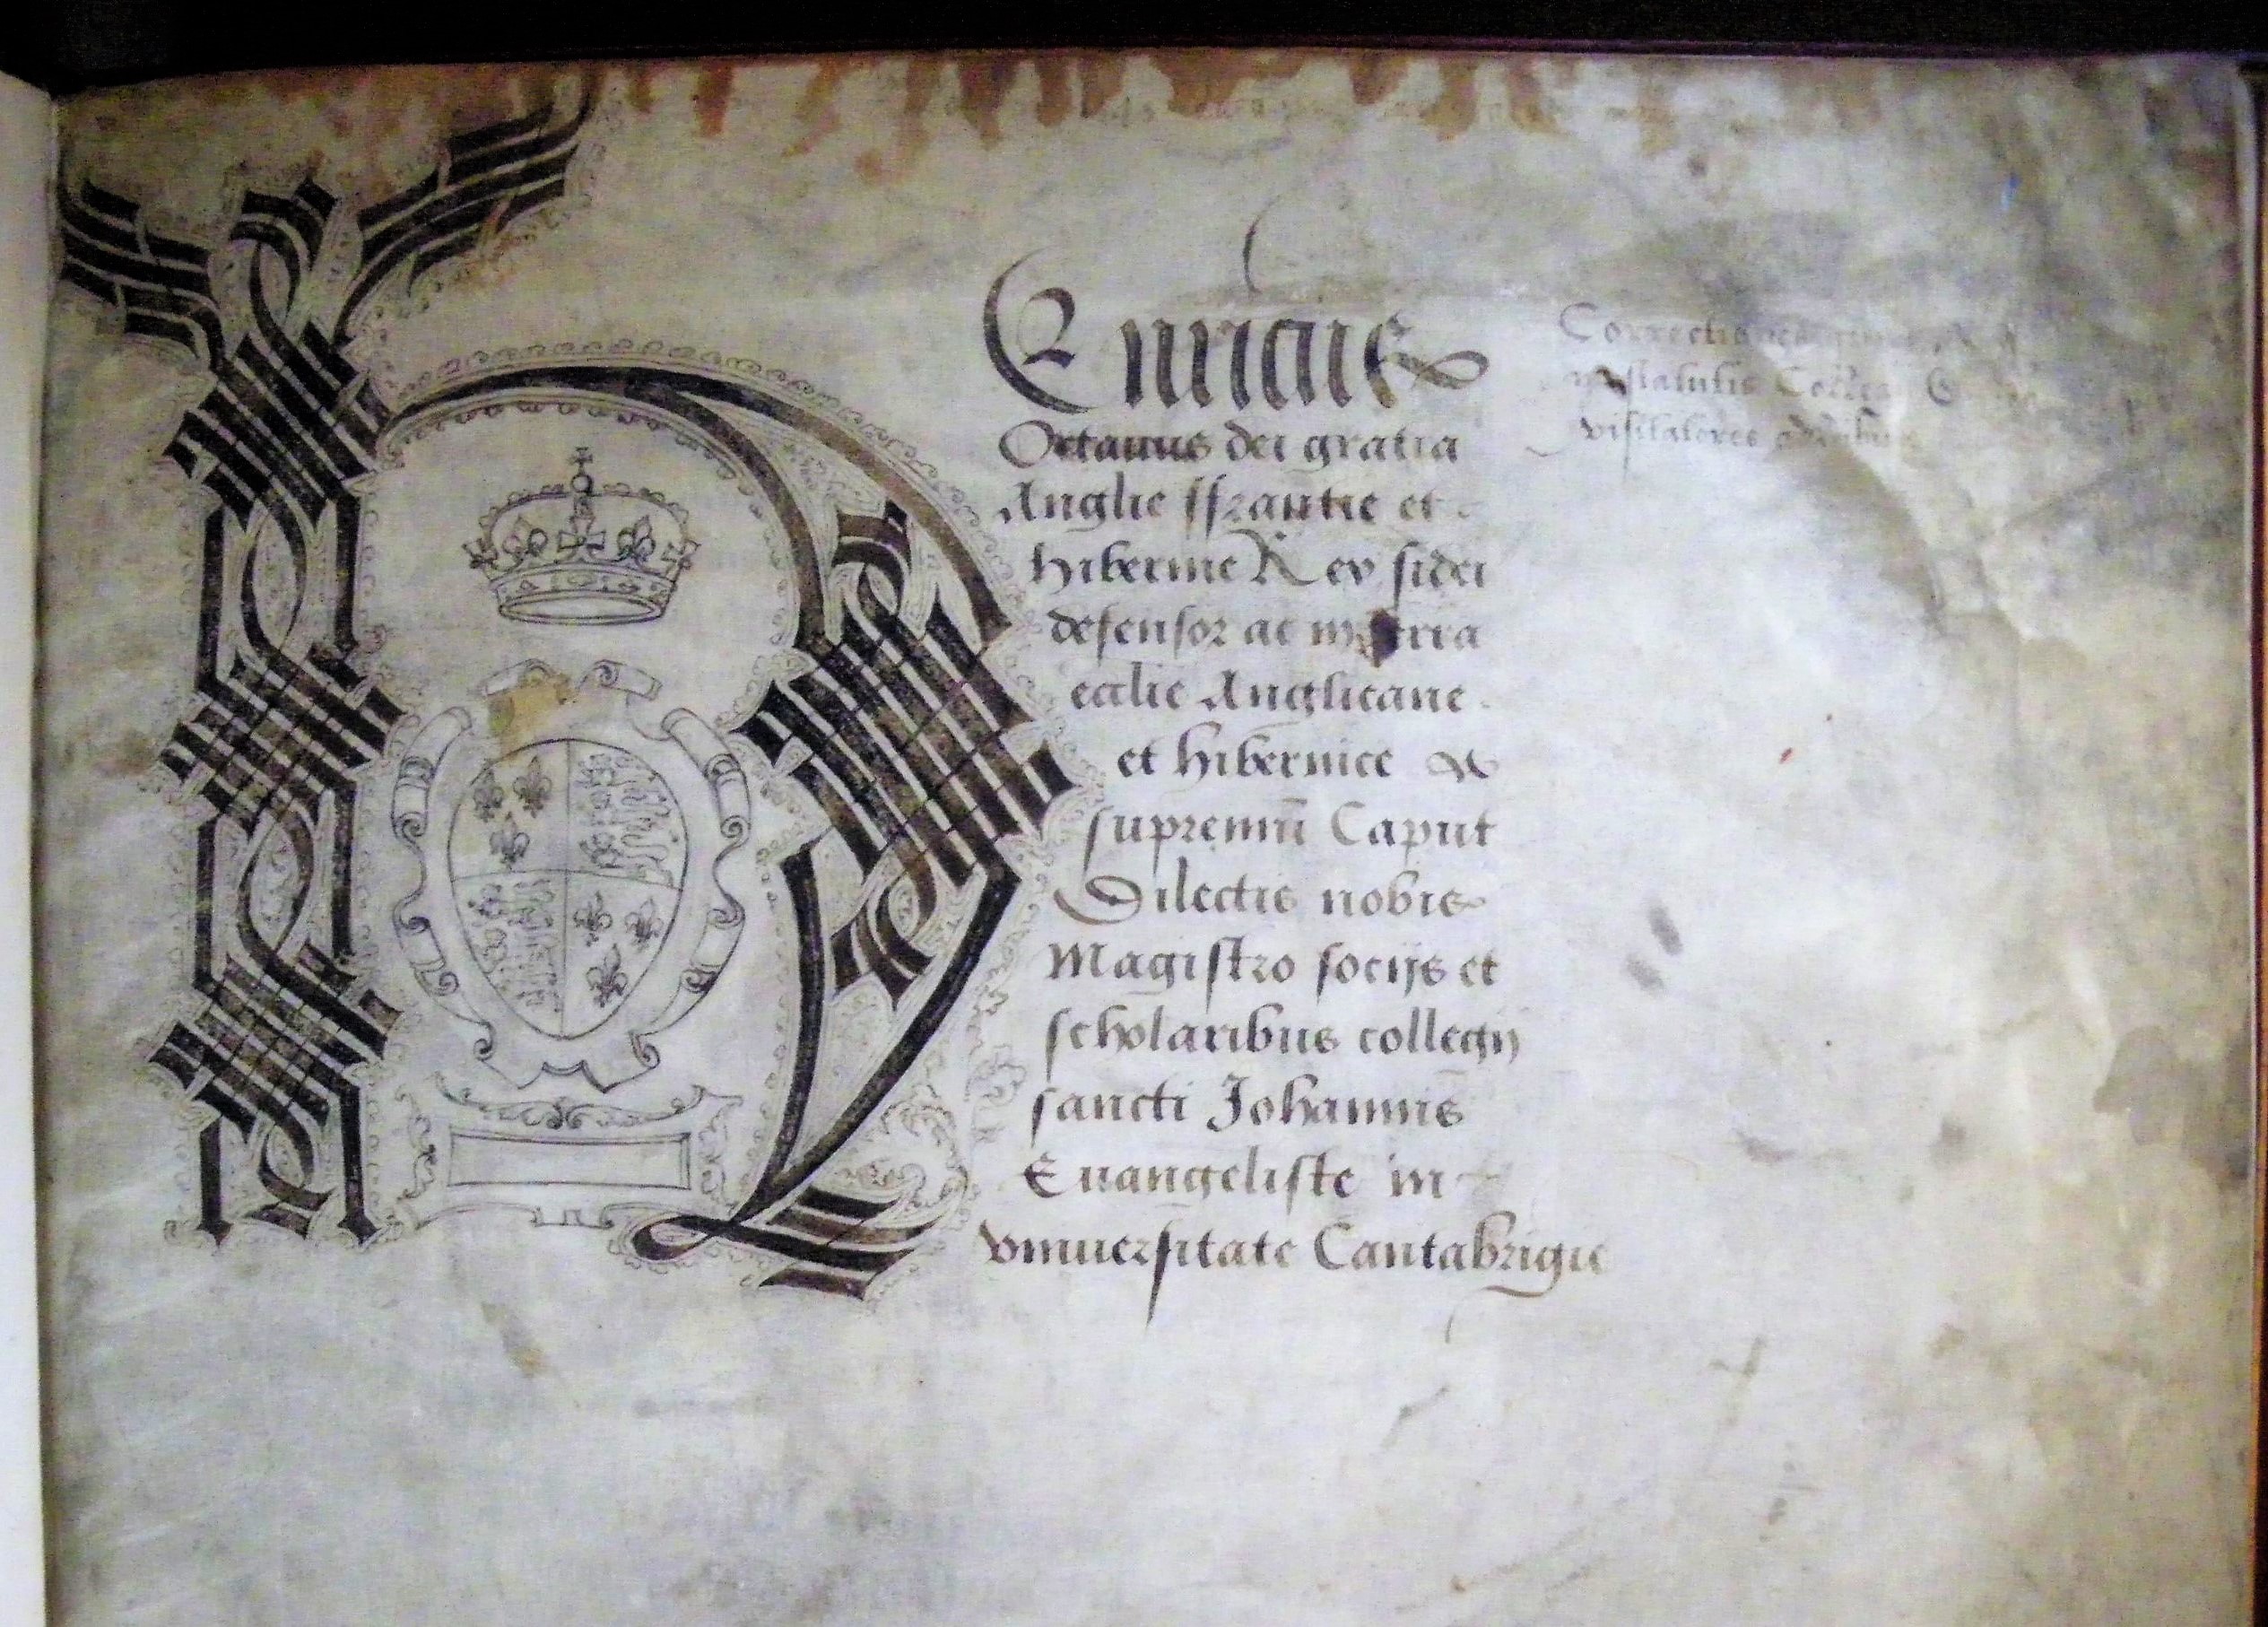 HEnricus
Octauus dei gratia
Anglie ffrantie et
hibernie Rex fidei
defensor ac in terra
ecclie Anglicane
et hibernice
supremū Caput
Dilectis nobis
Magistro socijs et
scholaribus collegij
sancti Johannis
Euangeliste in
vniuersitate Cantabrigie
statutis
visitatores